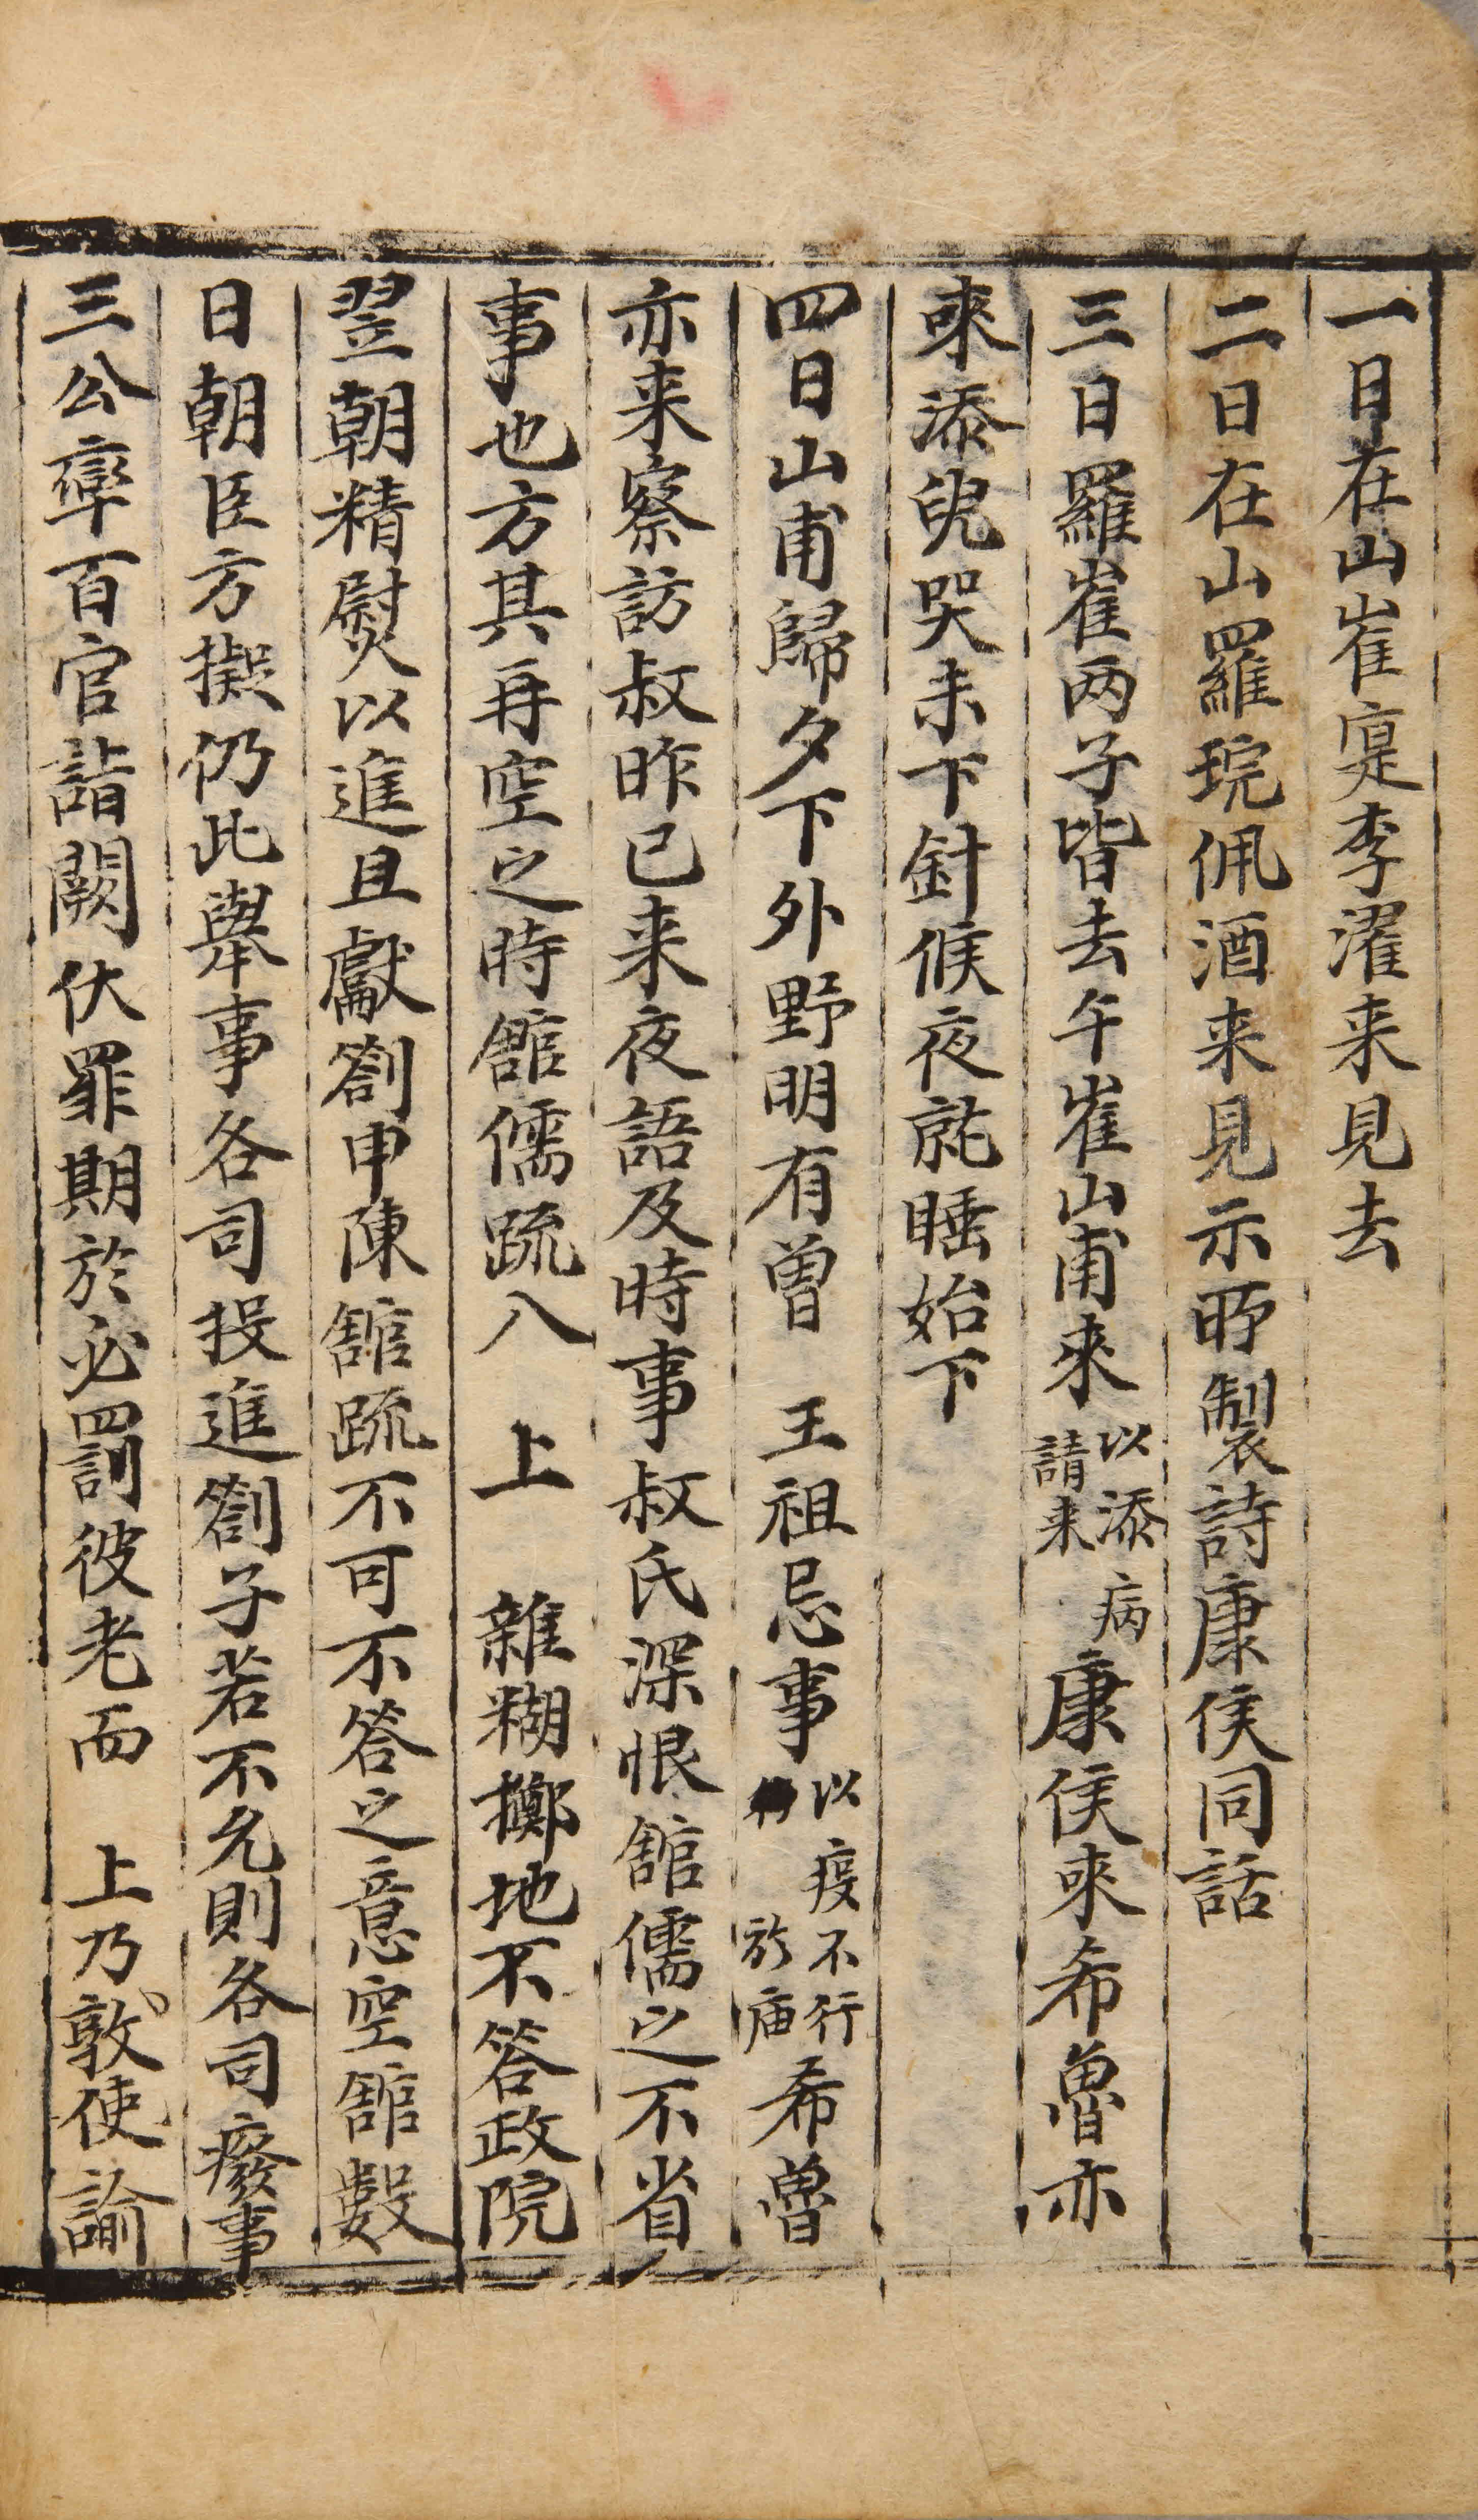 一日在山崔寔李濯来見去
二日在山羅琓佩酒来見示所製詩康侯同話
三日羅崔两子皆去午崔山甫來以添病請来康侯來希魯亦
來添兒哭未下針候夜就睡始下
四日山甫歸夕下外野明有曽 王祖忌事以疫不行於庙希曽
亦来察訪叔昨已来夜語及時事叔氏深恨舘儒之不省
事也方其再空之時舘儒䟽入 上 雜糊擲地不答政院
翌朝精熨以進且獻劄申陳舘䟽不可不答之意空舘數
日朝臣方擬仍此舉事各司投進劄子若不允則各司癈事
三公率百官詣闕伏罪期於必罰彼老而 上乃敦使諭